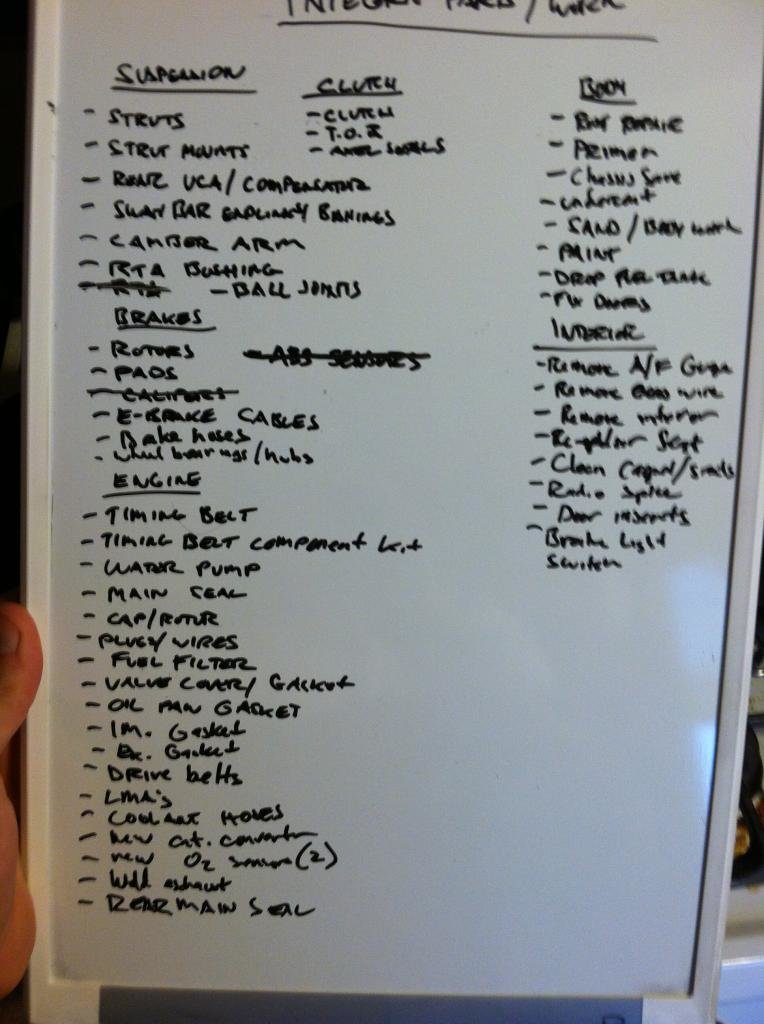 INTEGRA PARTS / WORK
SUSPENSION
- STRUTS
- STRUT MOUNTS
- REAR UCA/COMPENSATOR
- SWAY BAR ENDLINKS/
- CAMBER ARM
- RTA BUSHING
- RTA - BALL JOINTS
BRAKES
- ROTORS - ABS SENSORS
- PADS
- CALIPERS
- E-BRAKE CABLES
- Brake hoses
- wheel bearings/hubs
ENGINE
- TIMING BELT
- TIMING BELT component kit
- WATER PUMP
- MAIN SEAL
- CAP/ROTOR
- PLUGS/WIRES
- FUEL FILTER
- VALVE COVER/ GASKET
- OIL PAN GASKET
- IM. Gasket
- Ex. Gasket
- DRIVE belts
- LMA's
- COOLANT HOSES
- New cat. converter
- new O2 sensors (2)
- Weld exhaust
- REAR MAIN SEAL
CLUTCH
- CLUTCH
- T.O.B
- AXEL SEALS
BODY
- RUST
- PRIMER
- Chassis Save
- undercoat
- SAND / BODY work
- PAINT
- DROP FUEL TANK
- Fix
INTERIOR
- Remove A/F Gauge
- Remove wire
- Remove interior
- Seat
- Clean Carpet/seats
- Radio
- Door inserts
- Brake light
switch